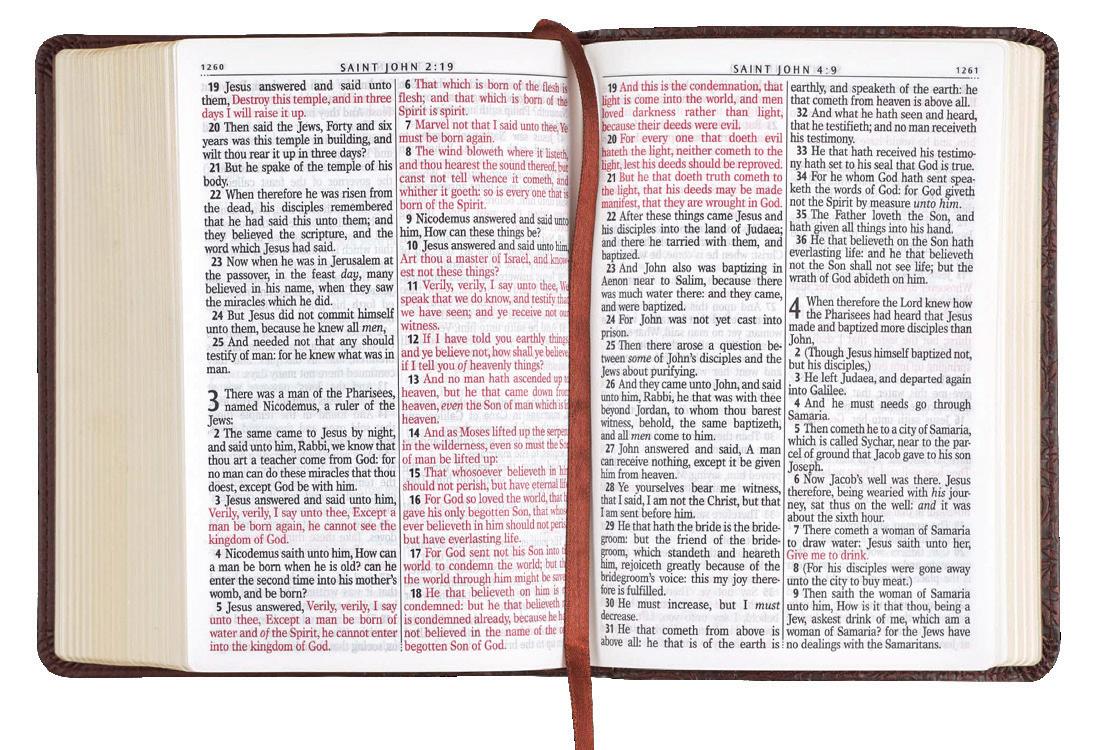 1260
SAINT JOHN 2:19
19 Jesus answered and said unto
them, Destroy this temple, and in three
days I will raise it up.
20 Then said the Jews, Forty and six
years was this temple in building, and
wilt thou rear it up in three days?
21 But he spake of the temple of his
body.
22 When therefore he was risen from
the dead, his disciples remembered
that he had said this unto them; and
they believed the scripture, and the
word which Jesus had said.
23 Now when he was in Jerusalem at
the passover, in the feast day, many
believed in his name, when they saw
the miracles which he did.
24 But Jesus did not commit himself
unto them, because he knew all men,
25 And needed not that any should
testify of man: for he knew what was in
man.
3 There was a man of the Pharisees,
named Nicodemus, a ruler of the
Jews:
2 The same came to Jesus by night,
and said unto him, Rabbi, we know that
thou art a teacher come from God: for
no man can do these miracles that thou
doest, except God be with him.
3 Jesus answered and said unto him,
Verily, verily, I say unto thee, Except a
man be born again, he cannot see the
kingdom of God.
4 Nicodemus saith unto him, How can
a man be born when he is old? can he
enter the second time into his mother's
womb, and be born?
5 Jesus answered, Verily, verily, I say
unto thee, Except a man be born of
water and of the Spirit, he cannot enter
into the kingdom of God.
6 That which is born of the flesh is
flesh; and that which is born of the
Spirit is spirit.
7 Marvel not that I said unto thee, Ye
must be born again.
8 The wind bloweth where it listeth,
and thou hearest the sound thereof, but
canst not tell whence it cometh, and
whither it goeth: so is every one that is
born of the Spirit.
9 Nicodemus answered and said unto
him, How can these things be?
10 Jesus answered and said unto him,
Art thou a master of Israel, and know-
est not these things?
11 Verily, verily, I say unto thee, We
speak that we do know, and testify that
we have seen; and ye receive not our
witness.
12 If I have told you earthly things,
and ye believe not, how shall ye believe,
if I tell you of heavenly things?
13 And no man hath ascended up to
heaven, but he that came down from
heaven, even the Son of man which is in
heaven.
14 And as Moses lifted up the serpen
in the wilderness, even so must the So
of man be lifted up:
15 That whosoever believeth in him
should not perish, but have eternal life
16 For God so loved the world, that h
gave his only begotten Son, that whos
ever believeth in him should not peris
but have everlasting life.
17 For God sent not his Son into t
world to condemn the world; but th
the world through him might be save
18 He that believeth on him is n
condemned: but he that believeth n
is condemned already, because he h
not believed in the name of the o
begotten Son of God.
SAINT JOHN 4:9
1261
19 And this is the condemnation, that
light is come into the world, and men
loved darkness rather than light,
because their deeds were evil.
20 For every one that doeth evil
hateth the light, neither cometh to the
light, lest his deeds should be reproved.
21 But he that doeth truth cometh to
the light, that his deeds may be made
manifest, that they are wrought in God.
22 After these things came Jesus and
his disciples into the land of Judaea;
and there he tarried with them, and
baptized.
23 And John also was baptizing in
Aenon near to Salim, because there
was much water there: and they came,
and were baptized.
24 For John was not yet cast into
prison.
25 Then there arose a question be-
tween some of John's disciples and the
Jews about purifying.
26 And they came unto John, and said
unto him, Rabbi, he that was with thee
beyond Jordan, to whom thou barest
witness, behold, the same baptizeth,
and all men come to him.
27 John answered and said, A man
can receive nothing, except it be given
him from heaven.
28 Ye yourselves bear me witness,
that I said, I am not the Christ, but that
I am sent before him.
29 He that hath the bride is the bride-
groom: but the friend of the bride-
groom, which standeth and heareth
him, rejoiceth greatly because of the
bridegroom's voice: this my joy there-
fore is fulfilled.
30 He must increase, but I must
decrease.
31 He that cometh from above is
above all: he that is of the earth is
earthly, and speaketh of the earth: he
that cometh from heaven is above all.
32 And what he hath seen and heard,
that he testifieth; and no man receiveth
his testimony.
33 He that hath received his testimo-
ny hath set to his seal that God is true.
34 For he whom God hath sent spea-
keth the words of God: for God giveth
not the Spirit by measure unto him.
35 The Father loveth the Son, and
hath given all things into his hand.
36 He that believeth on the Son hath
everlasting life: and he that believeth
not the Son shall not see life; but the
wrath of God abideth on him.
4 When therefore the Lord knew how
the Pharisees had heard that Jesus
made and baptized more disciples than
John,
2 (Though Jesus himself baptized not,
but his disciples,)
3 He left Judaea, and departed again
into Galilee.
4 And he must needs go through
Samaria.
5 Then cometh he to a city of Samaria,
which is called Sychar, near to the par-
cel of ground that Jacob gave to his son
Joseph.
6 Now Jacob's well was there. Jesus
therefore, being wearied with his jour-
ney, sat thus on the well: and it was
about the sixth hour.
7 There cometh a woman of Samaria
to draw water: Jesus saith unto her,
Give me to drink.
8 (For his disciples were gone away
unto the city to buy meat.)
9 Then saith the woman of Samaria
unto him, How is it that thou, being a
Jew, askest drink of me, which am a
woman of Samaria? for the Jews have
no dealings with the Samaritans.